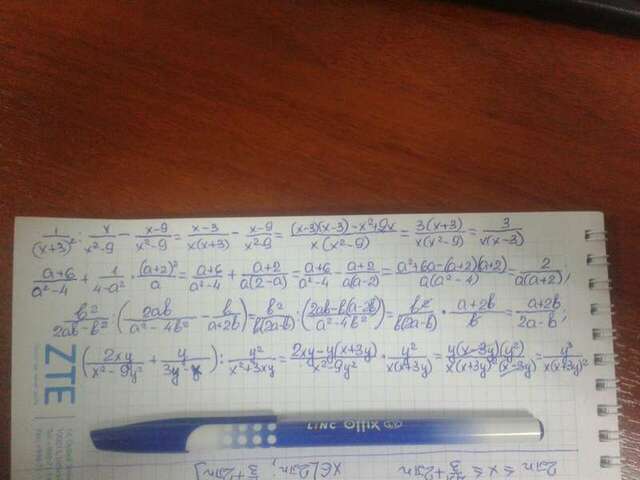 1/(x+3)² : x/(x²-9) - (x-9)/(x²-9) = (x-3)/(x(x+3)) - (x-9)/(x²-9) = ((x-3)(x-3)-x²+9x)/(x(x²-9)) = 3(x+3)/(x(x²-9)) = 3/(x(x-3))
(a+6)/(a²-4) + 1/(4-a²) · (a+2)²/a = (a+6)/(a²-4) + (a+2)/(a(2-a)) = (a+6)/(a²-4) - (a+2)/(a(a-2)) = (a²+6a-(a+2)(a+2))/(a(a²-4)) = 2/(a(a+2));
b²/(2ab-b²) · (2ab/(a²-4b²) - b/(a+2b)) = b²/(b(2a-b)) : ((2ab-b(a-2b))/(a²-4b²)) = b²/(b(2a-b)) · (a+2b)/b = (a+2b)/(2a-b);
(2xy/(x²-9y²) + y/(3y-x)) : y²/(x²+3xy) = (2xy-y(x+3y))/(x²-9y²) · y²/(x(x+3y)) = y(x-3y)(y²)/(x(x+3y)²(x-3y)) = y³/(x(x+3y)²)
ZTE
LINC Offix